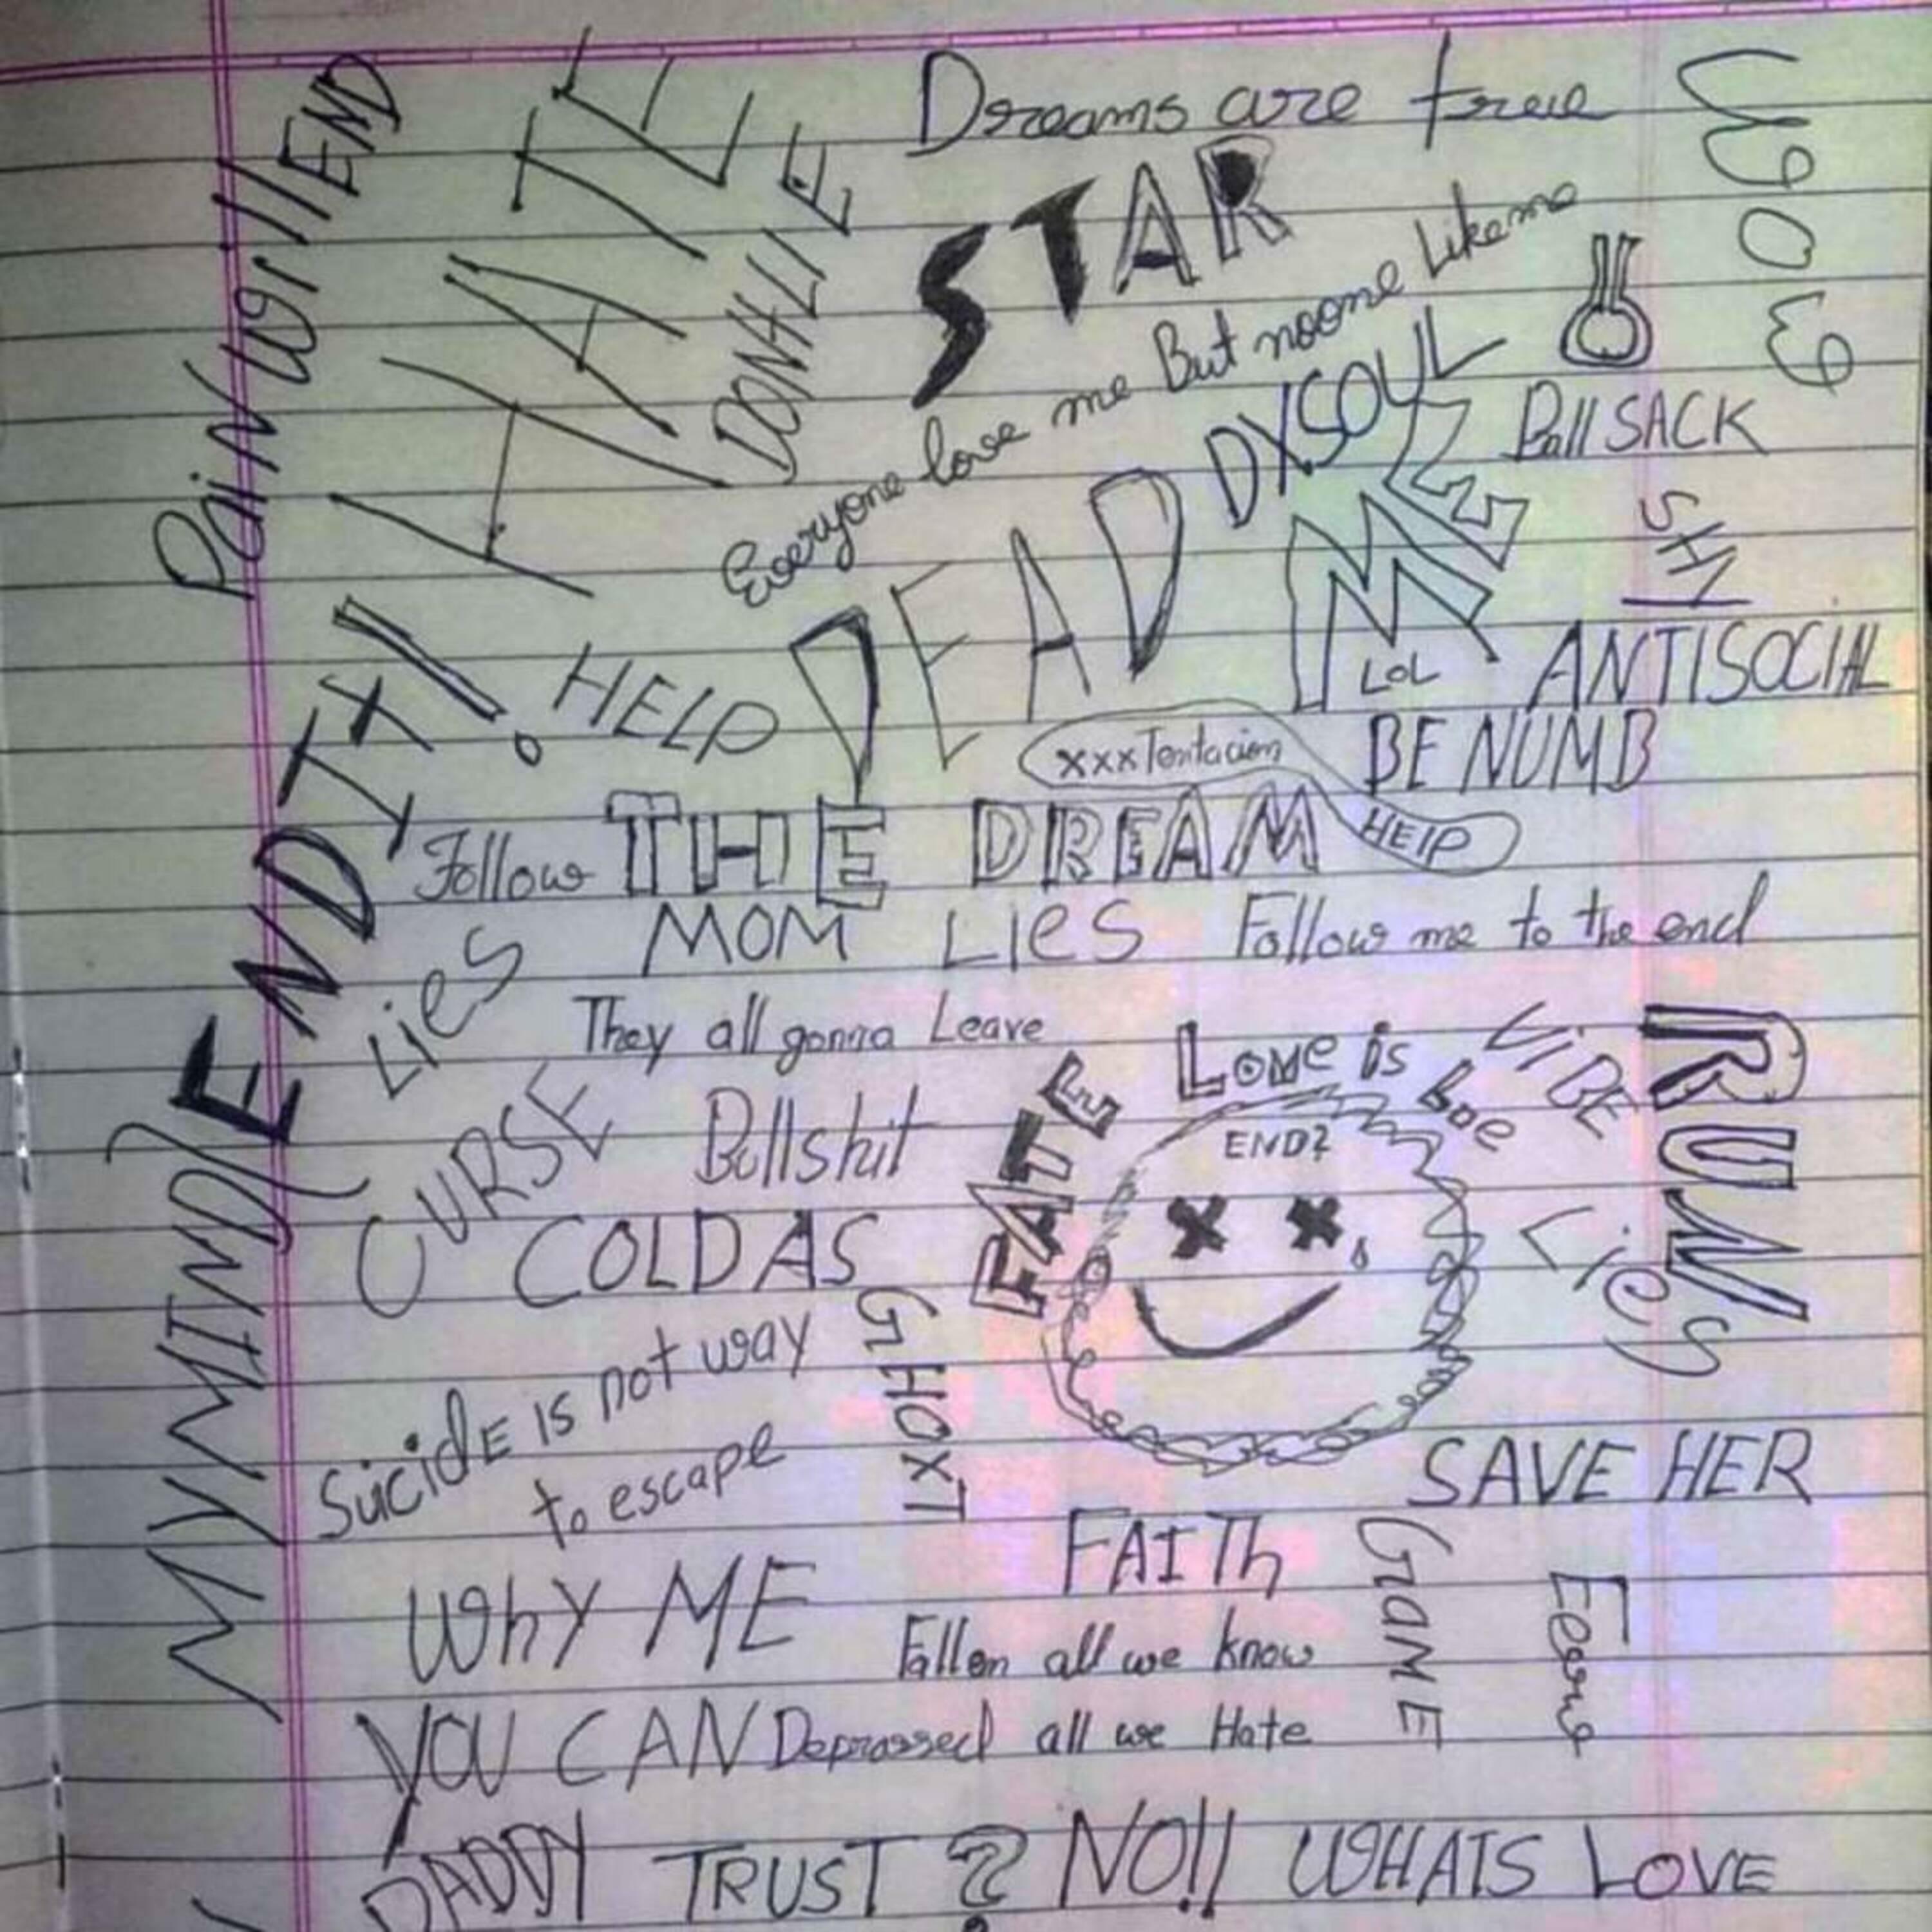 Dreams are true
Pain will END
HATE
DONHLIE
STAR
Everyone love me But noone Like me
DXSOUL
Ball SACK
SHY
DEAD
ME
LOL
ANTISOCIAL
HELP
xxxTentacion
HELP
BE NUMB
END IT!
Follow THE DREAM
MOM LIES
Follow me to the end
Lies
They all gonna Leave
FATE
Love is
VIBE
RUN
CURSE
Bullshit
END?
COLD AS
GHOXT
Lies
MY MIND
SuicidE is not way
to escape
SAVE HER
WhY ME
FAITh
GAME
Fallen all we know
YOU CAN
Depressed all we Hate
DADDY TRUST? NO!! WHATS LOVE